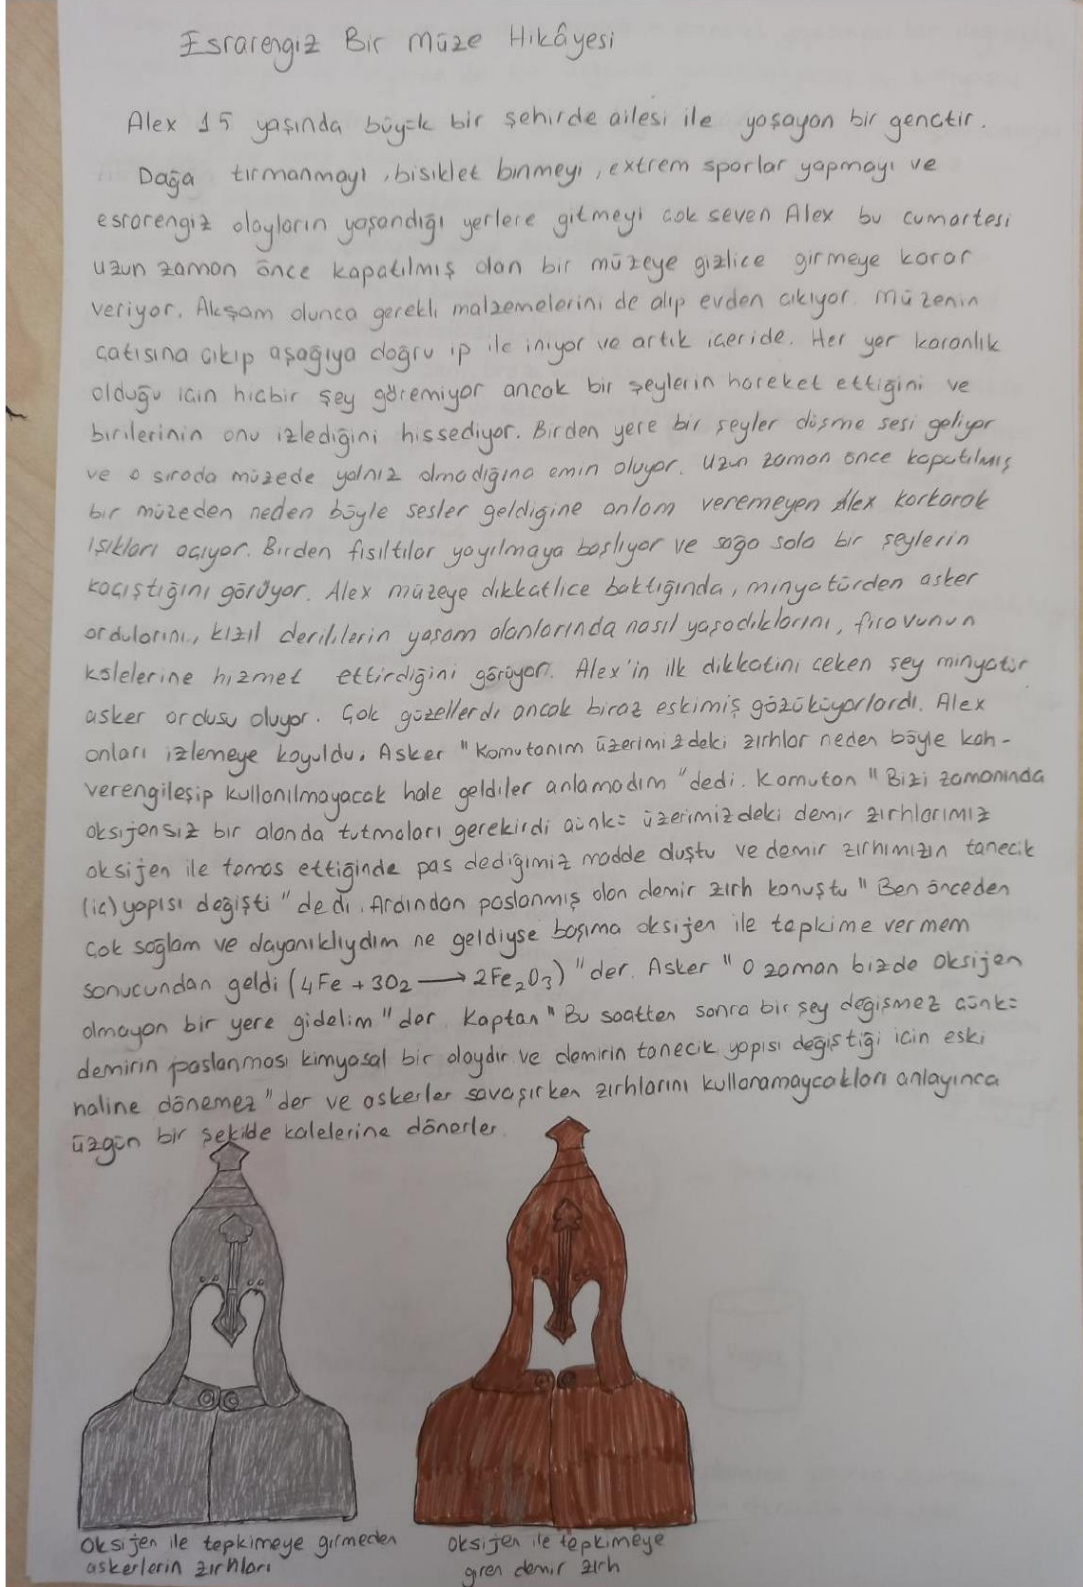 Esrarengiz Bir Müze Hikâyesi
Alex 15 yaşında büyük bir şehirde ailesi ile yaşayan bir gençtir.
Dağa tırmanmayı, bisiklet binmeyi, extrem sporlar yapmayı ve
esrarengiz olayların yaşandığı yerlere gitmeyi çok seven Alex bu cumartesi
uzun zaman önce kapatılmış olan bir müzeye gizlice girmeye karar
veriyor. Akşam olunca gerekli malzemelerini de alıp evden çıkıyor. Müzenin
çatısına çıkıp aşağıya doğru ip ile iniyor ve artık içeride. Her yer karanlık
olduğu için hiçbir şey göremiyor ancak bir şeylerin hareket ettiğini ve
birilerinin onu izlediğini hissediyor. Birden yere bir şeyler düşme sesi geliyor
ve o sırada müzede yalnız olmadığına emin oluyor. Uzun zaman önce kapatılmış
bir müzeden neden böyle sesler geldiğine anlam veremeyen Alex korkarak
ışıkları açıyor. Birden fısıltılar yayılmaya başlıyor ve sağa sola bir şeylerin
kaçıştığını görüyor. Alex müzeye dikkatlice baktığında, minyatürden asker
ordularını, kızıl derililerin yaşam alanlarında nasıl yaşadıklarını, firavunun
kölelerine hizmet ettirdiğini görüyor. Alex'in ilk dikkatini çeken şey minyatür
asker ordusu oluyor. Çok güzellerdi ancak biraz eskimiş gözüküyorlardı. Alex
onları izlemeye koyuldu. Asker "Komutanım üzerimizdeki zırhlar neden böyle kah-
verengileşip kullanılmayacak hale geldiler anlamadım" dedi. Komutan "Bizi zamanında
oksijensiz bir alanda tutmaları gerekirdi çünkü üzerimizdeki demir zırhlarımız
oksijen ile temas ettiğinde pas dediğimiz madde oluştu ve demir zırhımızın tanecik
(iç) yapısı değişti" dedi. Ardından paslanmış olan demir zırh konuştu "Ben önceden
çok sağlam ve dayanıklıydım ne geldiyse başıma oksijen ile tepkime vermem
sonucundan geldi (4Fe + 3O₂ ⟶ 2Fe₂O₃)" der. Asker "O zaman bizde oksijen
olmayan bir yere gidelim" der. Kaptan "Bu saatten sonra bir şey değişmez çünkü
demirin paslanması kimyasal bir olaydır ve demirin tanecik yapısı değiştiği için eski
haline dönemez" der ve askerler savaşırken zırhlarını kullanamaycakları anlayınca
üzgün bir şekilde kalelerine dönerler.
Oksijen ile tepkimeye girmeden
askerlerin zırhları
Oksijen ile tepkimeye
giren demir zırh